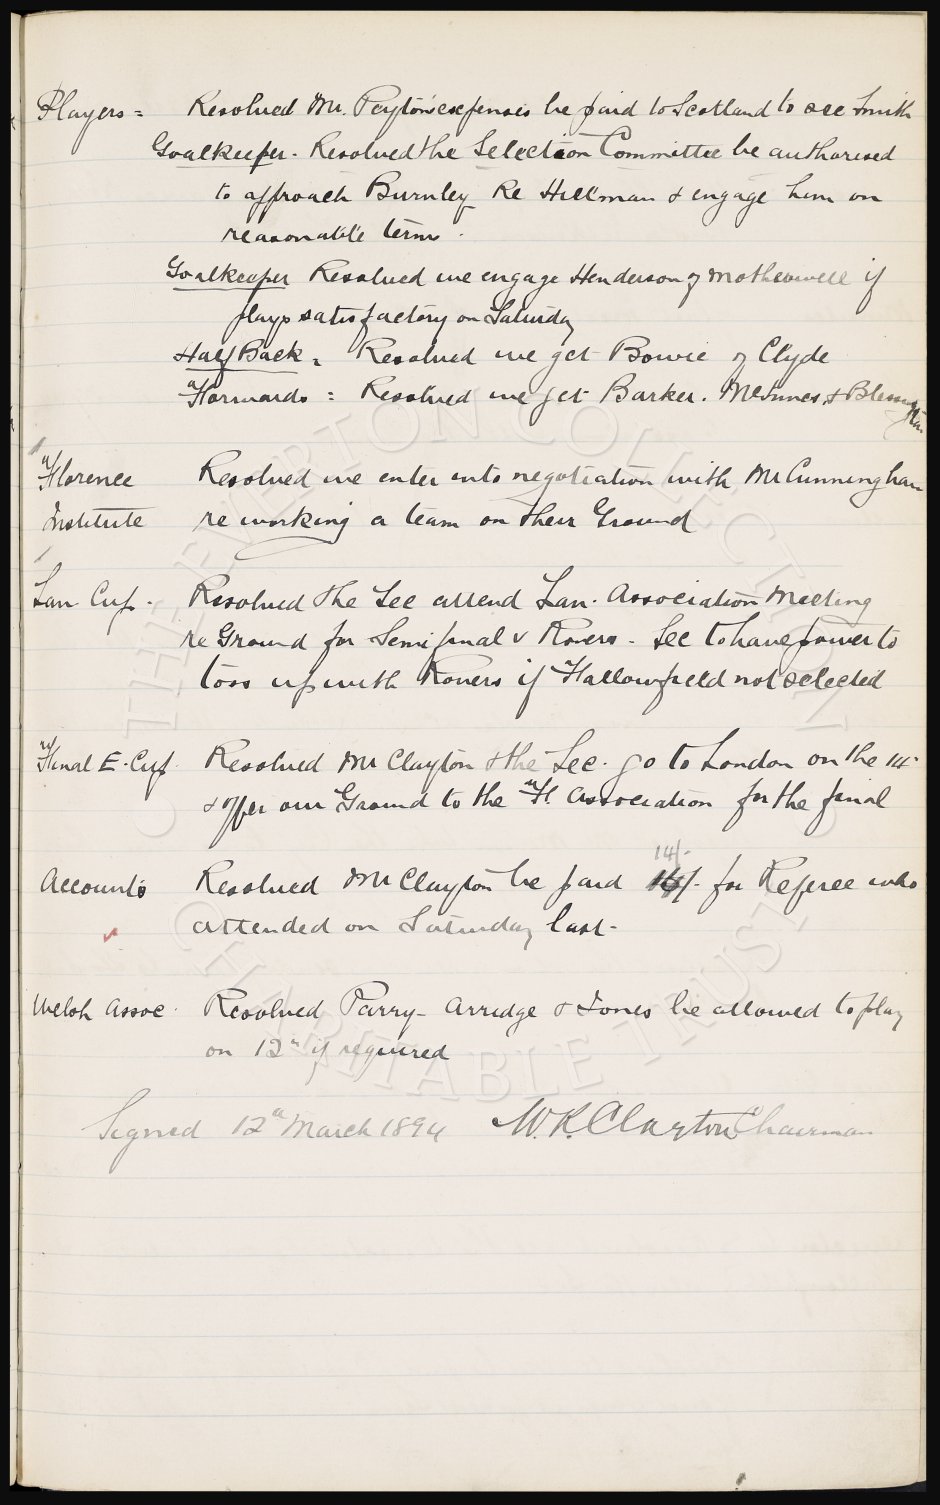 Players = Resolved Mr. Peyton's expenses be paid to Scotland to see Smith
Goalkeeper. Resolved the Selection Committee be authorised
to approach Burnley Re Hillman & engage him on
reasonable terms.
Goalkeeper Resolved we engage Henderson of Motherwell if
plays satisfactory on Saturday
Half Back = Resolved we get Bowie of Clyde
Forwards = Resolved we get Barker. McInnes & Blessington
Florence Resolved we enter into negotiation with Mr Cunningham
Institute re working a team on their Ground
Lan. Cup. Resolved the Sec attend Lan. Association Meeting
re Ground for Semifinal v Rovers. Sec to have power to
toss up with Rovers if Fallowfield not selected
Final E. Cup. Resolved Mr Clayton & the Sec. go to London on the 14
& offer our Ground to the F. Association for the final
14/-
Accounts Resolved Mr Clayton be paid /- for Referee who
attended on Saturday last.
Welsh Assoc. Resolved Parry - Arridge & Jones be allowed to play
on 12th if required
Signed 12th March 1894 W.R. Clayton Chairman
THE EVERTON COLLECTION
CHARITABLE TRUST